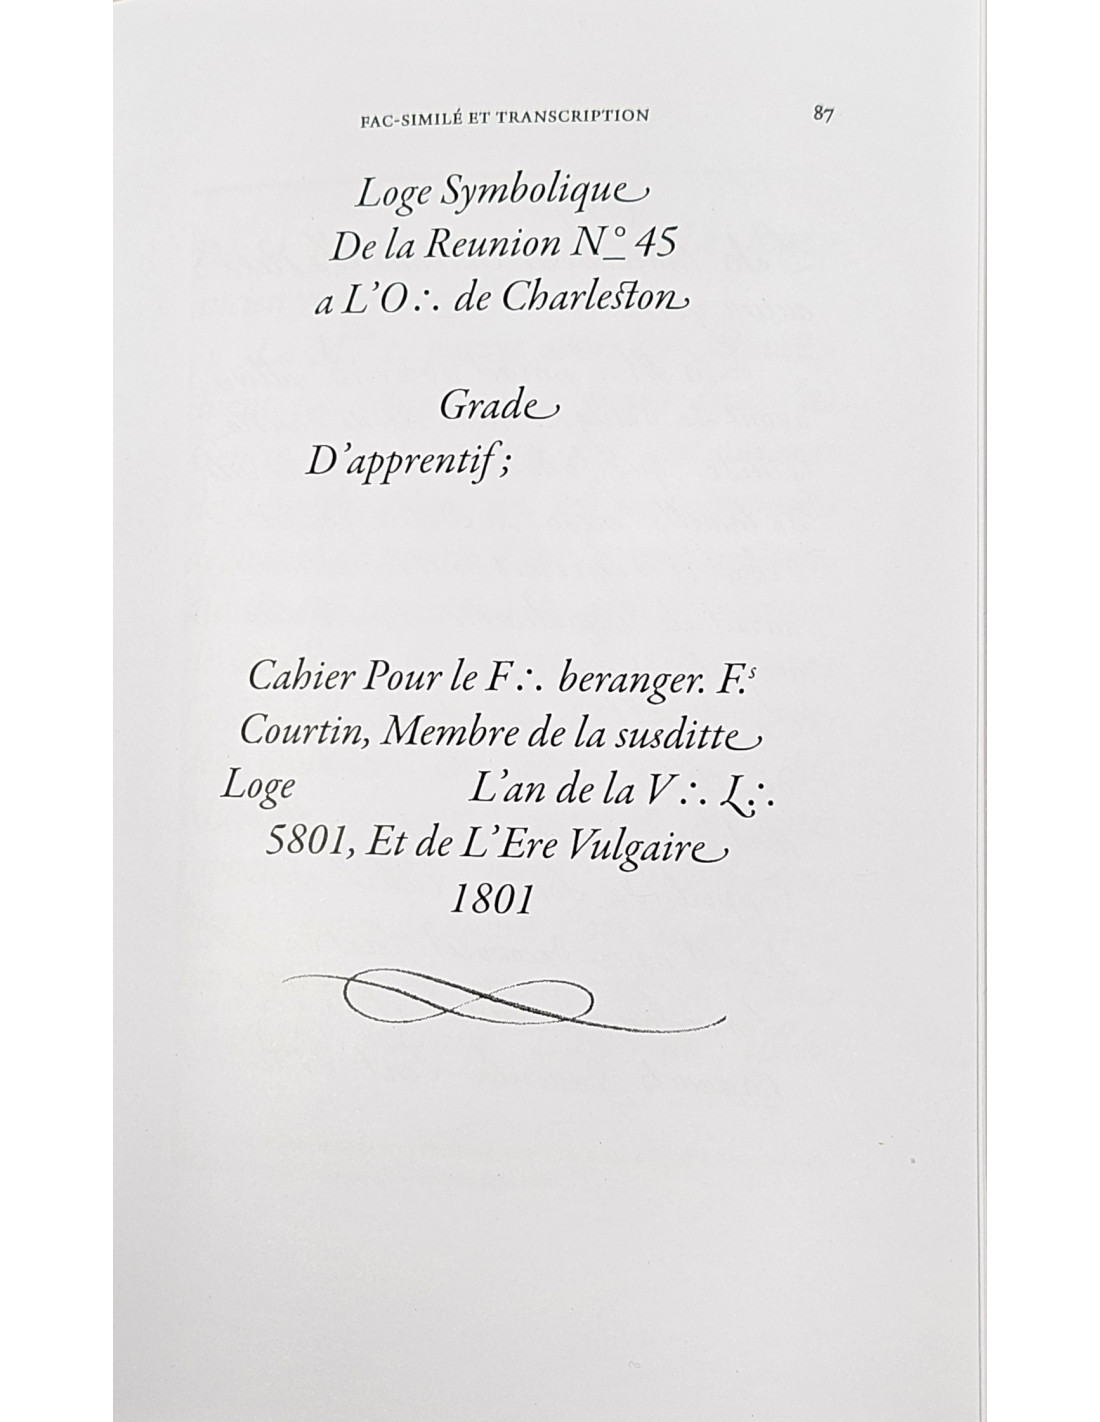 FAC-SIMILÉ ET TRANSCRIPTION 87
Loge Symbolique
De la Reunion N° 45
a L'O∴ de Charleston
Grade
D'apprentif ;
Cahier Pour le F∴ beranger. F.s
Courtin, Membre de la susditte
Loge L'an de la V∴ L∴
5801, Et de L'Ere Vulgaire
1801